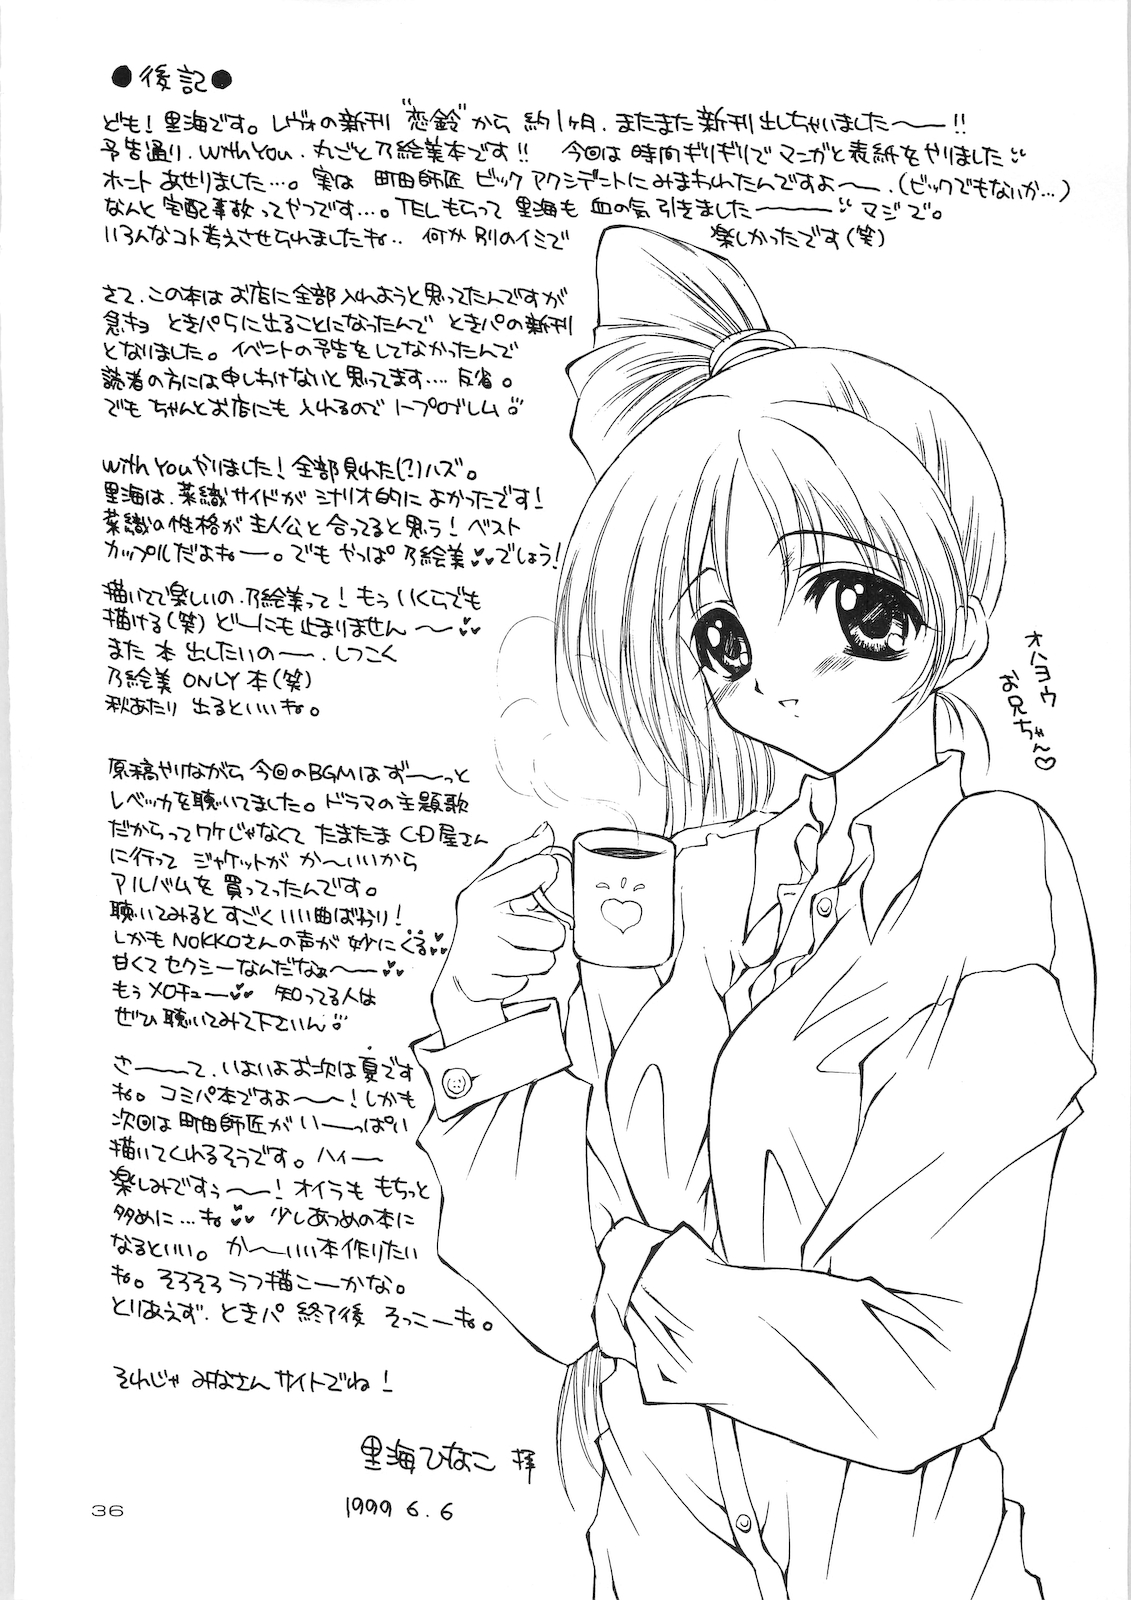 ●後記●
ども！里海です。レヴォの新刊"恋鈴"から約1ヶ月、またまた新刊出しちゃいました〜〜!!
予告通り、With You、丸ごと乃絵美本です!!　今回は時間ギリギリでマンガと表紙をやりました
ホントあせりました…。実は町田師匠ビックアクシデントにみまわれたんですよ〜、(ビックでもないか…)
なんと宅配事故ってやつです…。TELもらって里海も血の気引きました〜〜〜マジで。
いろんなコト考えさせられましたね‥何か別のイミで　楽しかったです(笑)
さて、この本はお店に全部入れようと思ってたんですが
急キョときパ5に出ることになったんでときパの新刊
となりました。イベントの予告をしてなかったんで
読者の方には申しわけないと思ってます‥‥反省。
でもちゃんとお店にも入れるのでノープロブレム
With Youやりました！全部見れた(?)ハズ。
里海は、菜織サイドがシナリオ的によかったです！
菜織の性格が主人公と合ってると思う！ベスト
カップルだよねー。でもやっぱ乃絵美♥♥でしょう！
描いてて楽しいの、乃絵美って！もういくらでも
描ける(笑)どーにも止まりません〜♥♥
また本出したいの〜、しつこく
乃絵美ONLY本(笑)
秋あたり出るといいね。
原稿やりながら今回のBGMはず〜〜っと
レベッカを聴いてました。ドラマの主題歌
だからってワケじゃなくてたまたまCD屋さん
に行ってジャケットがか〜いいから
アルバムを買ってったんです。
聴いてみるとすごくいい曲ばかり！
しかもNOKKOさんの声が妙にくる♥♥
甘くてセクシーなんだなぁ〜〜♥♥
もうメロチュ〜♥♥　知ってる人は
ぜひ聴いてみて下さいん
さ〜〜て、いよいよお次は夏です
ね。コミパ本ですよ〜〜！しかも
次回は町田師匠がい〜〜っぱい
描いてくれるそうです。ハイ〜
楽しみですぅ〜〜！オイラももちっと
多めに…ね♥♥　少しあつめの本に
なるといい。か〜いい本作りたい
ね。そろそろラフ描こーかな。
とりあえず、ときパ終了後そっこーね。
それじゃみなさんサイトでね！
里海ひなこ 拝
1999 6.6
オハヨウ
お兄ちゃん♡
36